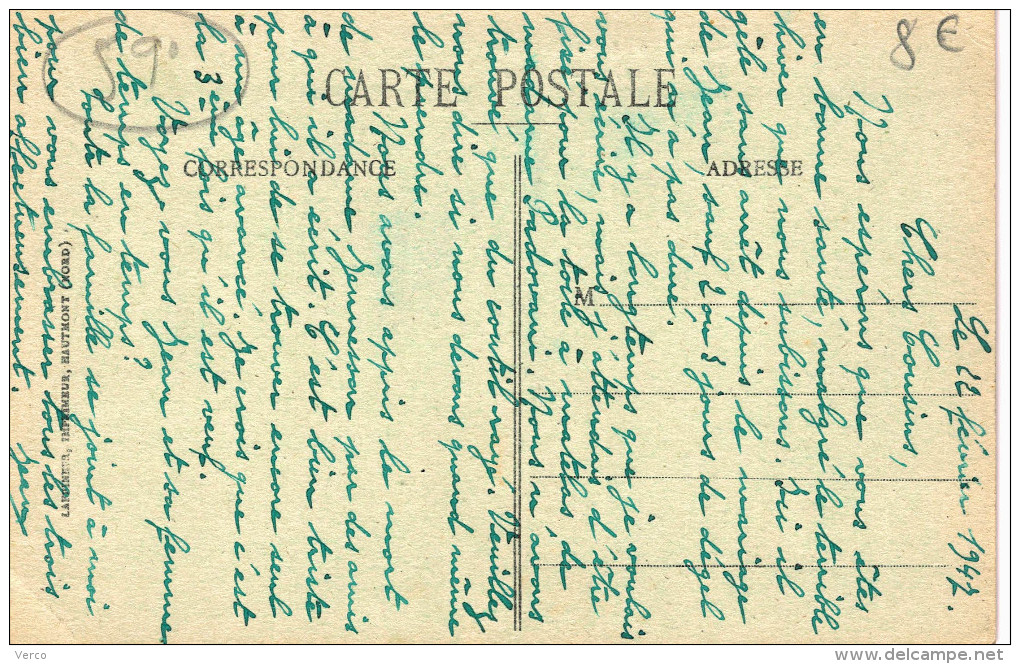 59.
8 €
CARTE POSTALE
CORRESPONDANCE
ADRESSE
M
LAFFINEUR, IMPRIMEUR, HAUTMONT (NORD)
Le 22 février 1947.
Chers Cousins,
Nous espérons que vous êtes
en bonne santé, malgré le terrible
hiver que nous subissons. Ici il
gèle sans arrêt depuis le mariage
de Jean, sauf 2 ou 3 jours de dégel
qui n'a pas duré.
Il y a longtemps que je voulais
vous écrire, mais j'attendais d'être
fixés pour la toile à matelas de
madame Padovani. Nous n'avons
trouvé que du coutil rayé. Veuillez
nous dire si nous devons quand même
le prendre.
Nous avons appris la mort
de madame par des amis
à qui il a écrit. C'est bien triste
pour lui de se trouver encore seul
à un âge avancé. Je crois que c'est
la 3ème fois qu'il est veuf.
Voyez vous Jean et sa femme
de temps en temps?
Toute la famille se joint à moi
pour vous embrasser tous les trois
bien affectueusement.
Verco
www.delcampe.net